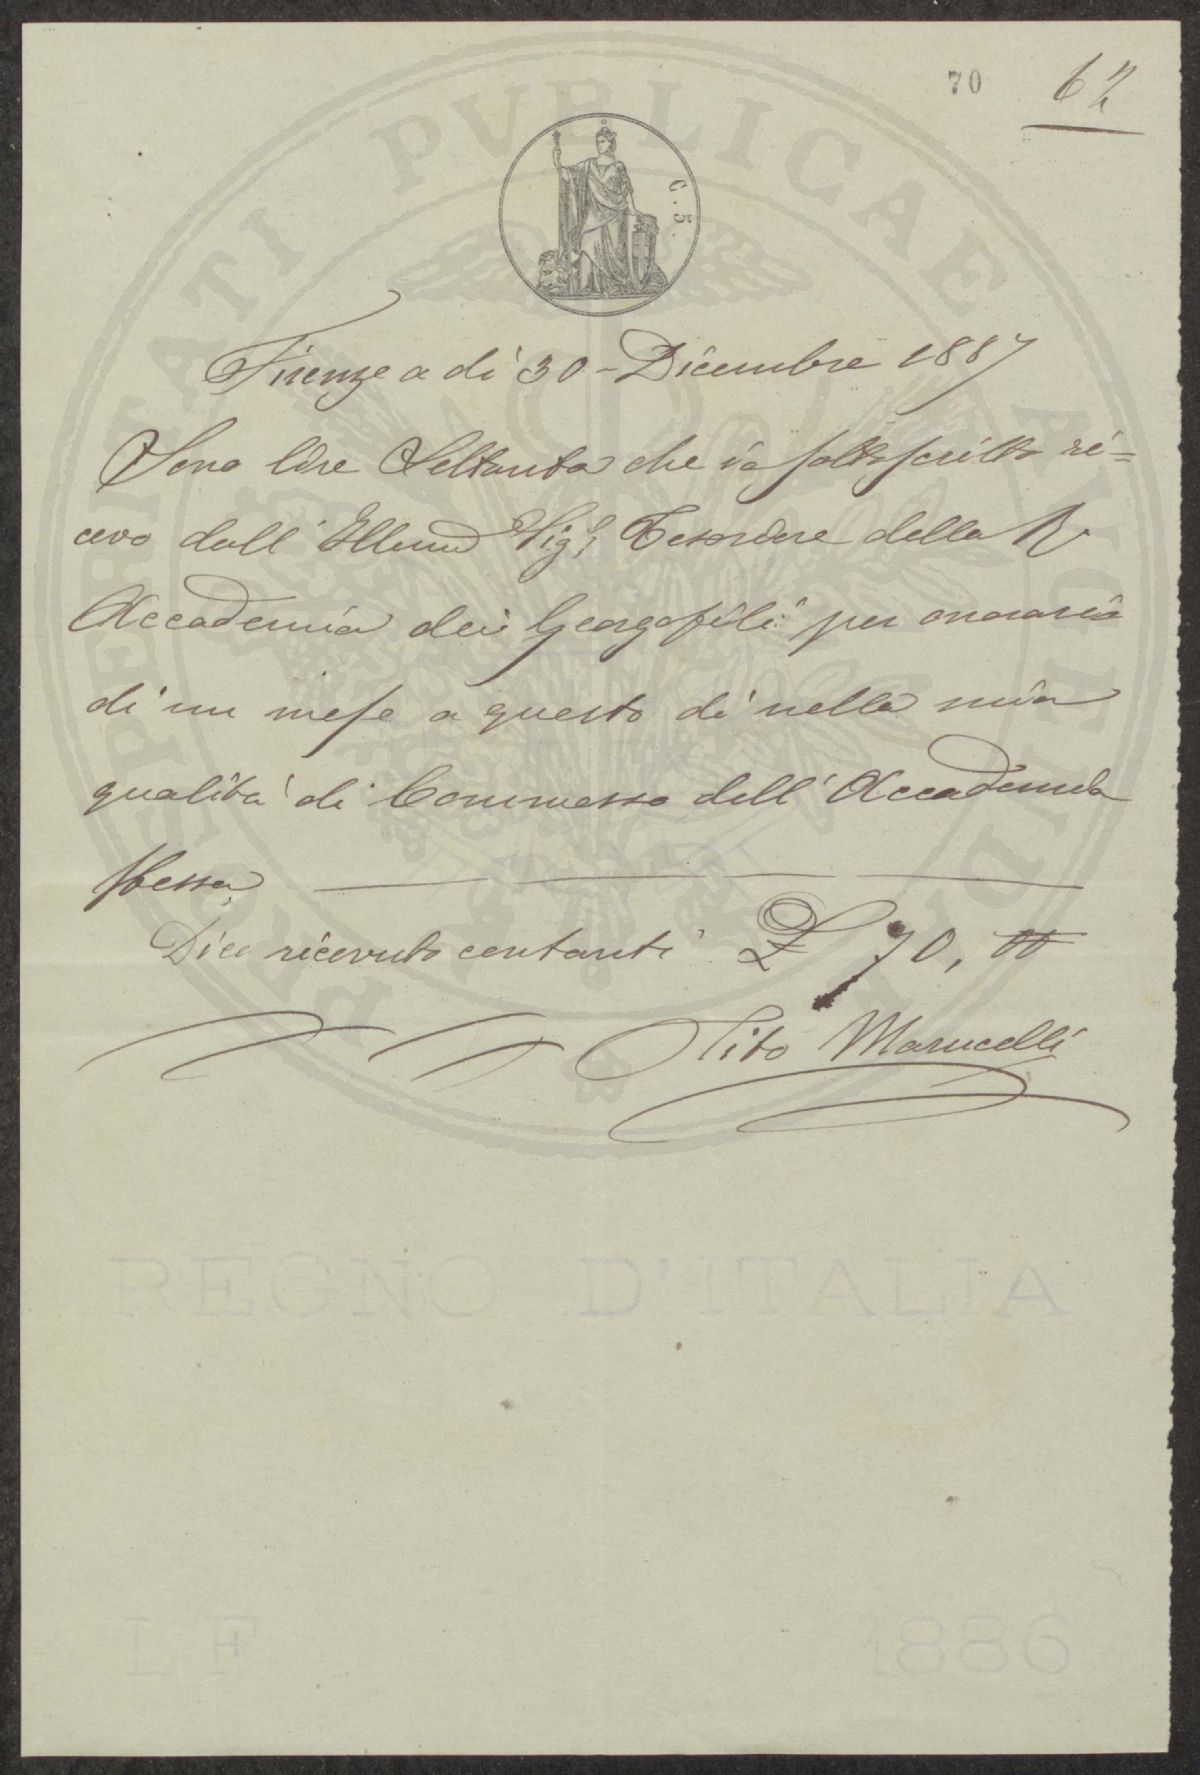 70 62
C. 5.
Firenze a di 30 - Dicembre 1887
Sono lire Settanta che io sottoscritto ri=
cevo dall' Illmo Sigr Tesoriere della R
Accademia dei Georgofili per onorario
di un mese a questo dì nella mia
qualità di Commesso dell' Accademia
stessa
Dico ricevuto contanti £ 70, 00
Tito Marucelli
PROSPERITATI PVBLICAE
REGNO D'ITALIA
LF 1886